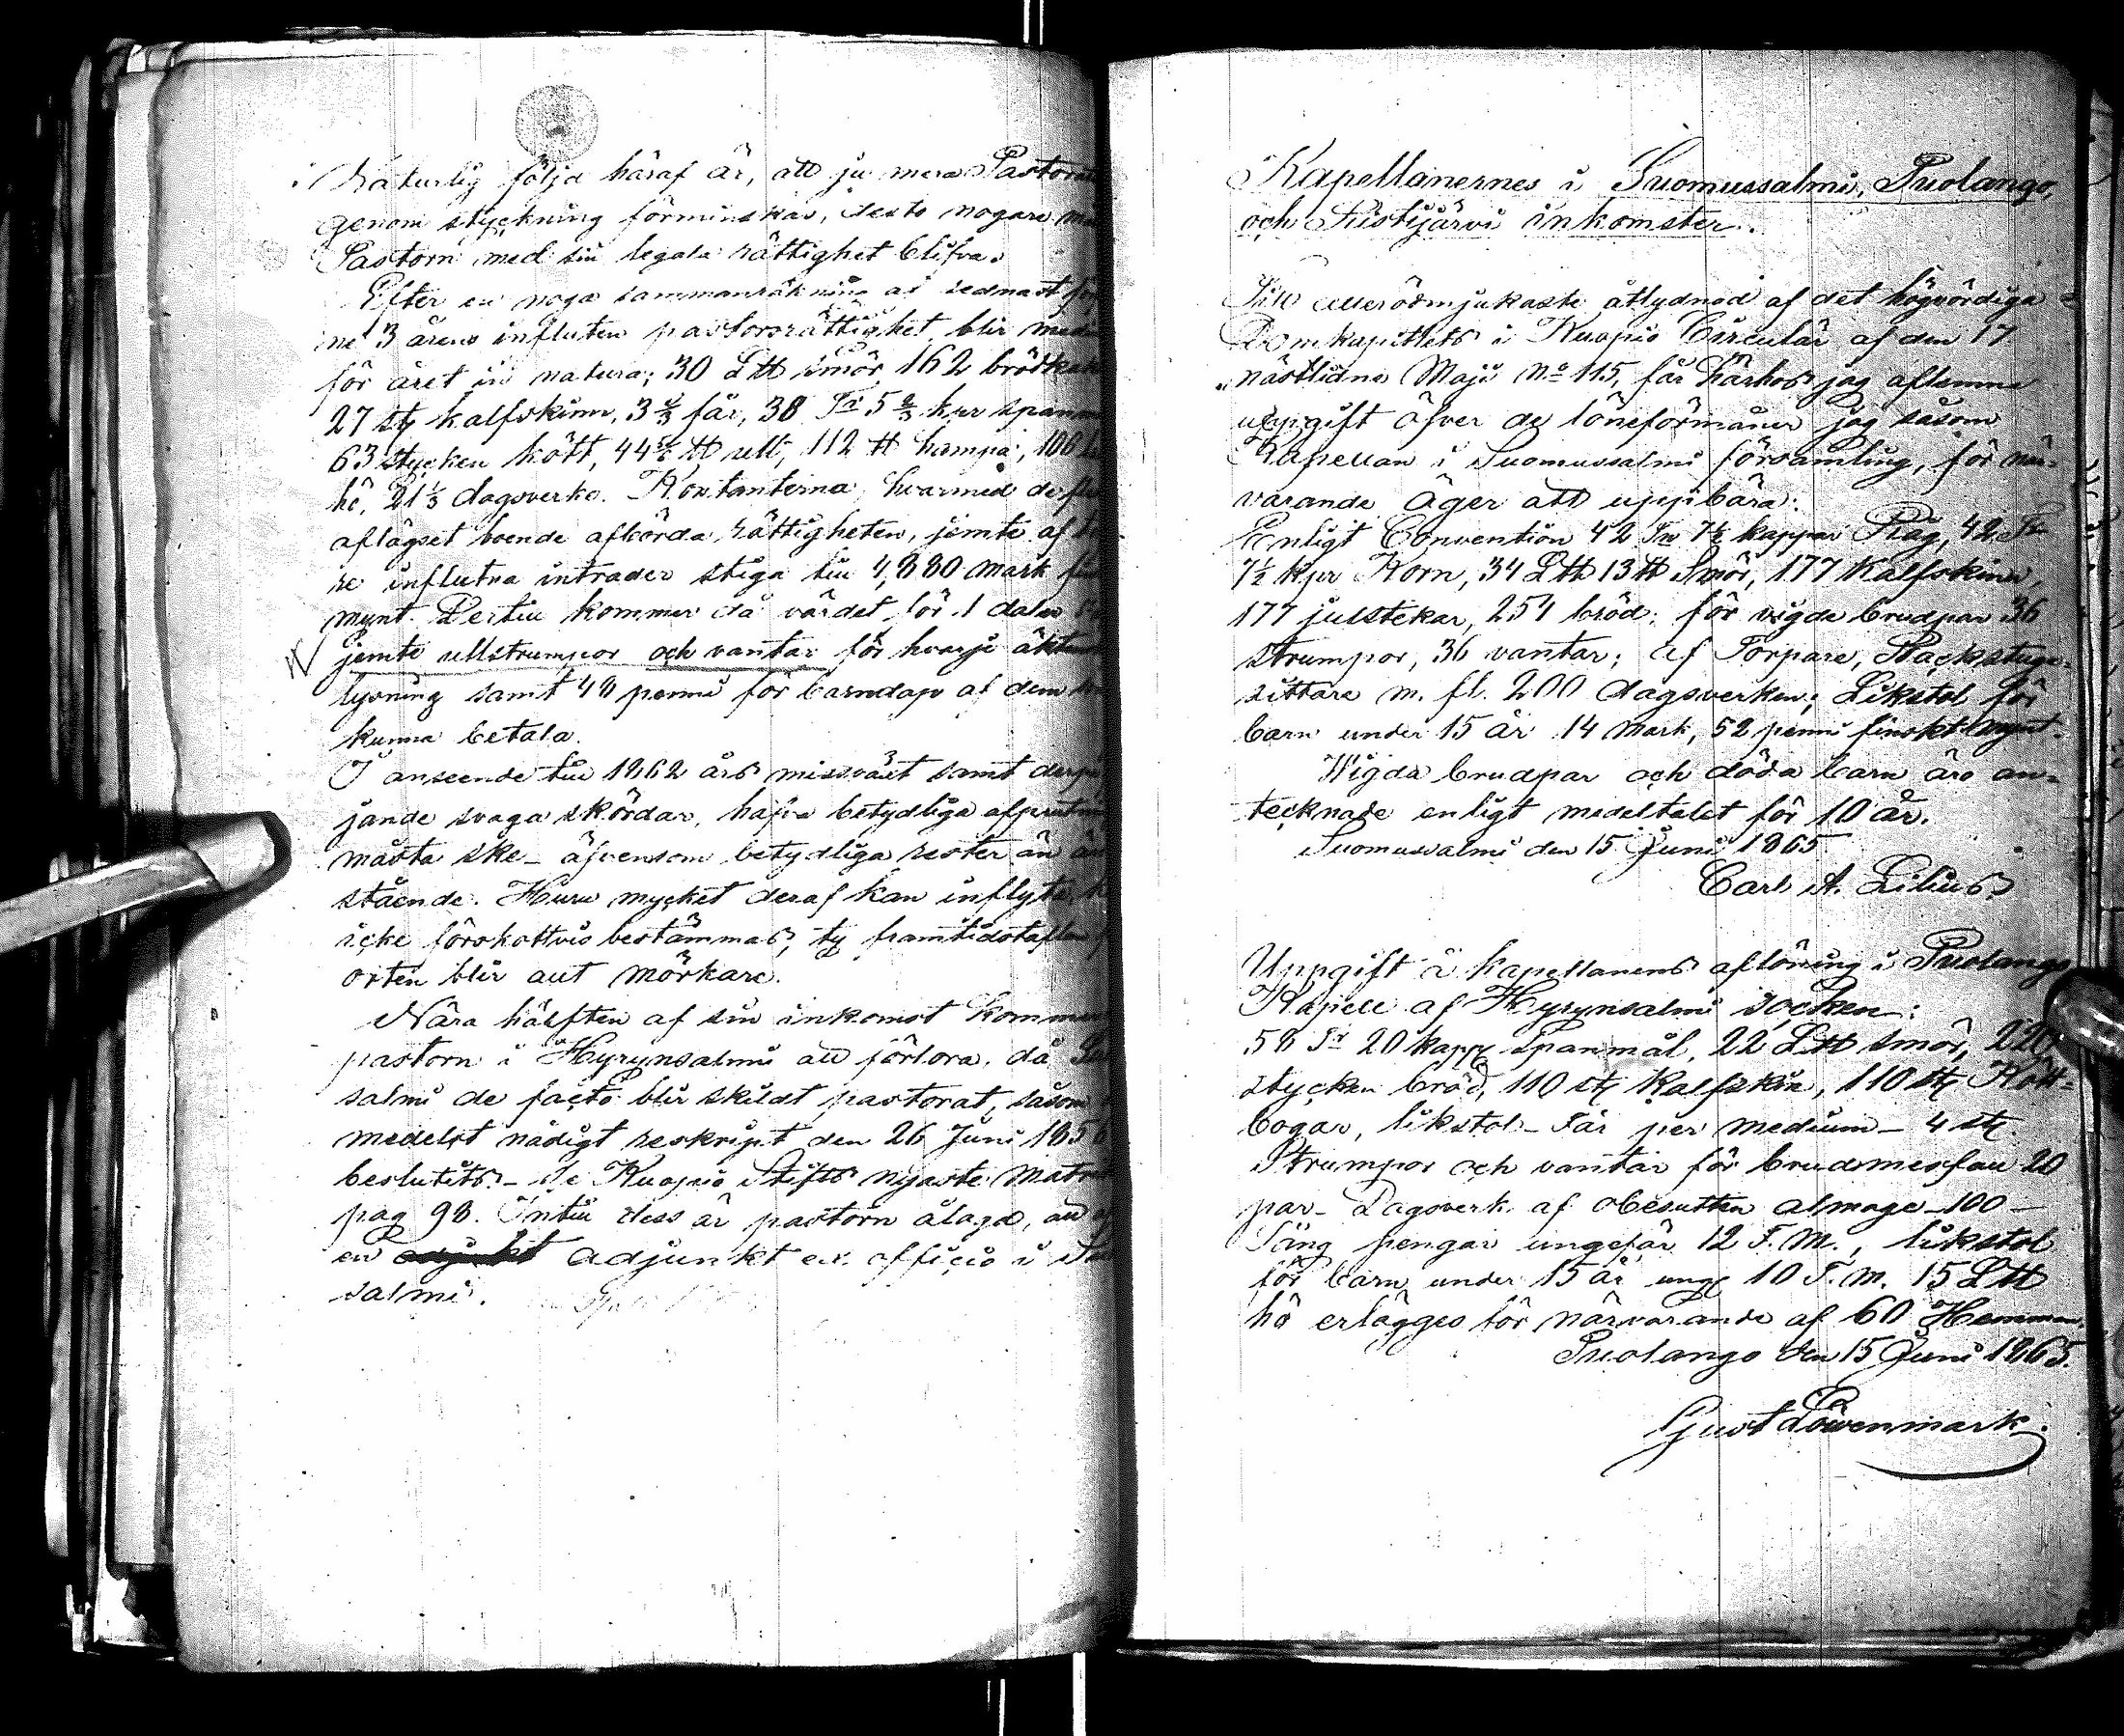 Naturlig följd häraf är, att ju mera Pastorat
genom styckning förminskas, desto nogare
Pastorn med sin legala rättighet blifva.
Efter en noga sammanräkning af sednast
ne 3 årens influten pastorsrättighet blir
för året in natura; 30 L℔ smör 162 brödkakor
27 st. kalfskinn, 3⅔ får, 38 Tr 5⅔ kpr
63 stycken kött, 44⅚ ℔ ull, 112 ℔ hampa, 106
hö, 21⅓ dagsverke. Kontanterna, hvarmed
aflägset boende afbörda rättigheten, jemte af
re influtna intrader stiga till 4,880 mark
mynt. Dertill kommer då värdet för 1 daler
jemte ullstrumpor och vantar för hvarje
lysning samt 48 penni för barndop af dem
kunna betala.
I anseende till 1862 års missväxt samt
jande svaga skördar, hafva betydliga
måsta ske – äfvensom betydliga rester än
stående. Huru mycket deraf kan inflyta
icke förskottvis bestämmas, ty framtidstaflan
orten blir allt mörkare.
Nära hälften af sin inkomst kommer
pastorn i Hyrynsalmi att förlora, då
salmi de facto blir skildt pastorat, såsom
medelst nådigt reskript den 26 Juni 1856
beslutits. – Se Kuopio Stifts nyaste
pag 98. Intill dess är pastorn ålagd, att
en adjunkt ex officio i
salmi.
Kapellanernes i Suomussalmi, Puolango,
och Ristijärvi inkomster.
Till allerödmjukaste åtlydnad af det högvördiga
Domkapitlets i Kuopio Circulär af den 17
nästlidne Maji No 115, får härhos jag aflemna
uppgift öfver de löneförmåner jag såsom
Kapellan i Suomussalmi församling, för när-
varande äger att uppbära:
Enligt Convention 42 Tr 7½ kappar Råg, 42 Tr
7½ kpr Korn, 34 L℔ 13 ℔ Smör, 177 Kalfskinn,
177 julstekar, 254 bröd; för vigda brudpar 36
strumpor, 36 vantar; af Torpare, Backstuge-
sittare m. fl. 200 dagsverken; Likstol för
barn under 15 år 14 Mark, 52 penni finskt mynt.
Wigda brudpar och döda barn äro an-
tecknade enligt medeltalet för 10 år.
Suomussalmi den 15 Juni 1865
Carl A. Lilius
Uppgift å kapellanens aflöning i Puolango
Kapell af Hyrynsalmi socken:
58 Tr 20 kapp Spanmål, 22 L℔ smör, 220
stycken bröd, 110 st. Kalfskin, 110 st. Kött-
bogar, likstol – Får per medium – 4 st.
Strumpor och vantar för brudmessan 20
par – Dagsverk af obesutten almoge – 100 –
Säng pengar ungefär 12 F. M., likstol
för barn under 15 år ung. 10 F. M. 15 L℔
hö erlägges för närvarande af 60 Hemman.
Puolango den 15 Juni 1865.
Gust Löwenmark.